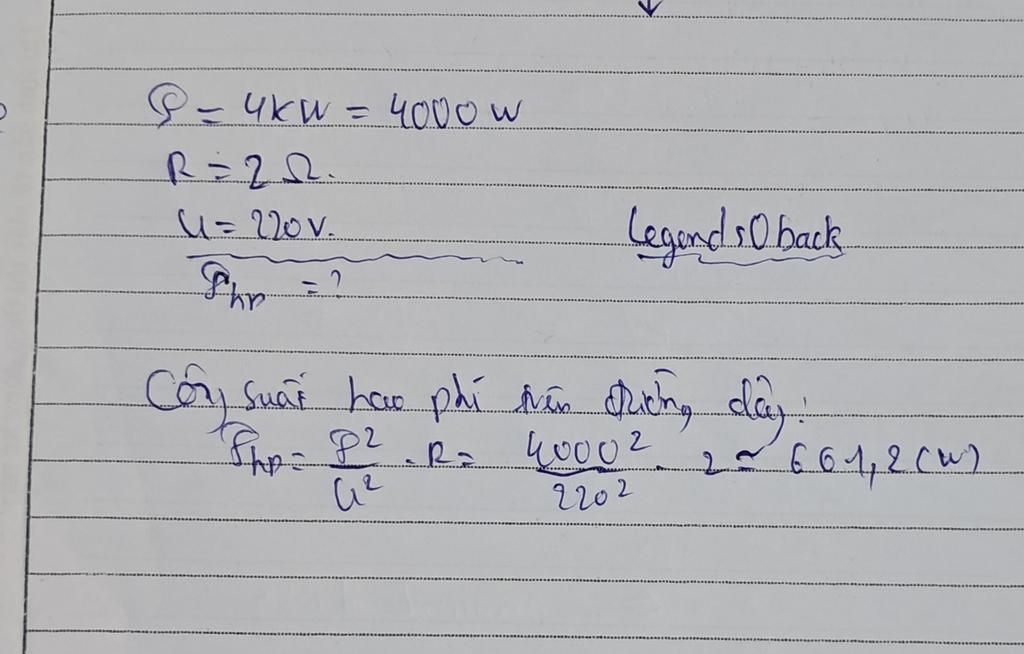 P = 4KW = 4000 W
R = 2 Ω.
U = 220V.
Legends0back
Php = ?
Công suất hao phí trên đường dây:
Php = P²/U² . R = 4000²/220² . 2 ≃ 661,2 (W)